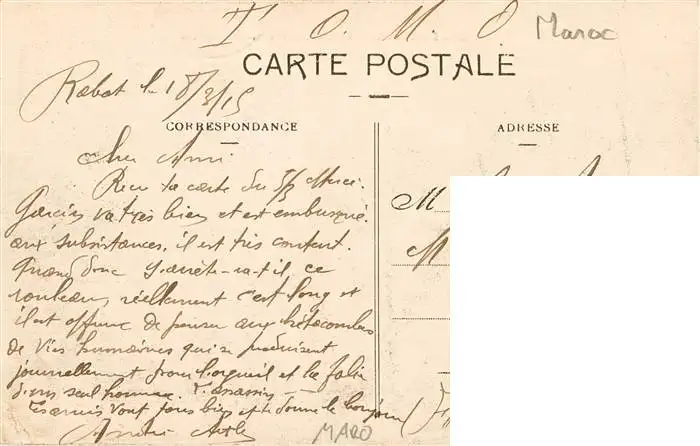 T. O. M. O. Maroc
CARTE POSTALE
Rabat le 18/3/15
CORRESPONDANCE
Cher Ami
Reçu ta carte du 5/3 Merci.
Garcin va très bien et est embusqué
aux subsistances. il est très content.
Quand donc s'arrêtera-t-il ce
rouleau, réellement c'est long et
il est affreux de penser aux hécatombes
de vies humaines qui se produisent
journellement pour l'orgueil et la folie
d'un seul homme. assassin
Les amis vont tous bien et te donne le bonjour
André
MARO
ADRESSE
M
M